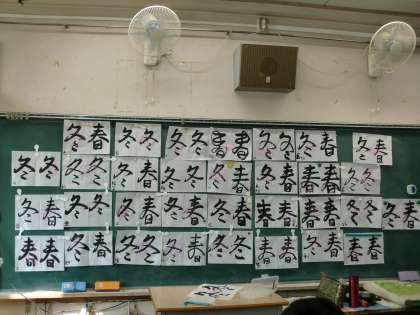 冬春 冬冬 冬冬 春春 冬冬 冬春 冬春
冬冬 冬冬 冬冬 冬冬 冬春 冬春 春春 冬冬
冬春 冬冬 冬春 冬春 冬春 春春 春春 冬冬 冬春
春春 冬冬 冬冬 冬春 冬冬 春春 冬春 春春